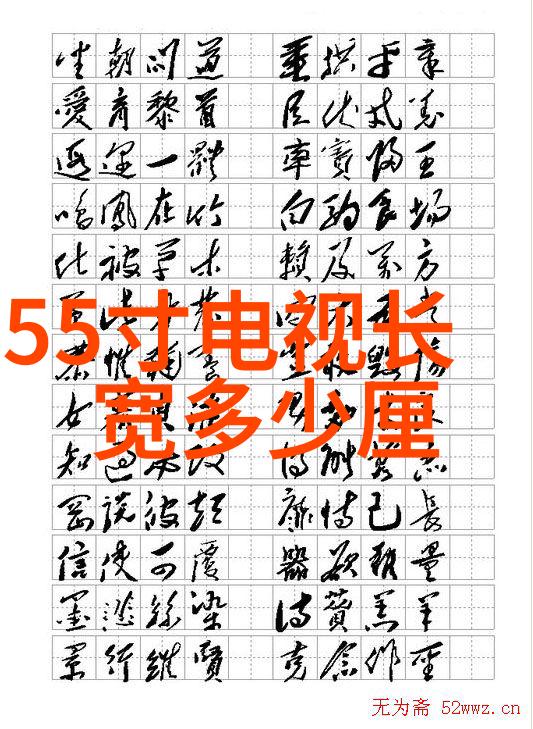 坐朝问道 垂拱平章
愛育黎首 臣伏戎羌
遐迩一體 率賓歸王
鳴鳳在竹 白駒食場
化被草木 賴及萬方
55寸电视长
宽多少厘
知過必改 得能莫忘
罔談彼短 靡恃己長
信使可覆 器欲難量
墨悲絲染 詩贊羔羊
景行維賢 克念作聖
无为斋 52wwz.cn